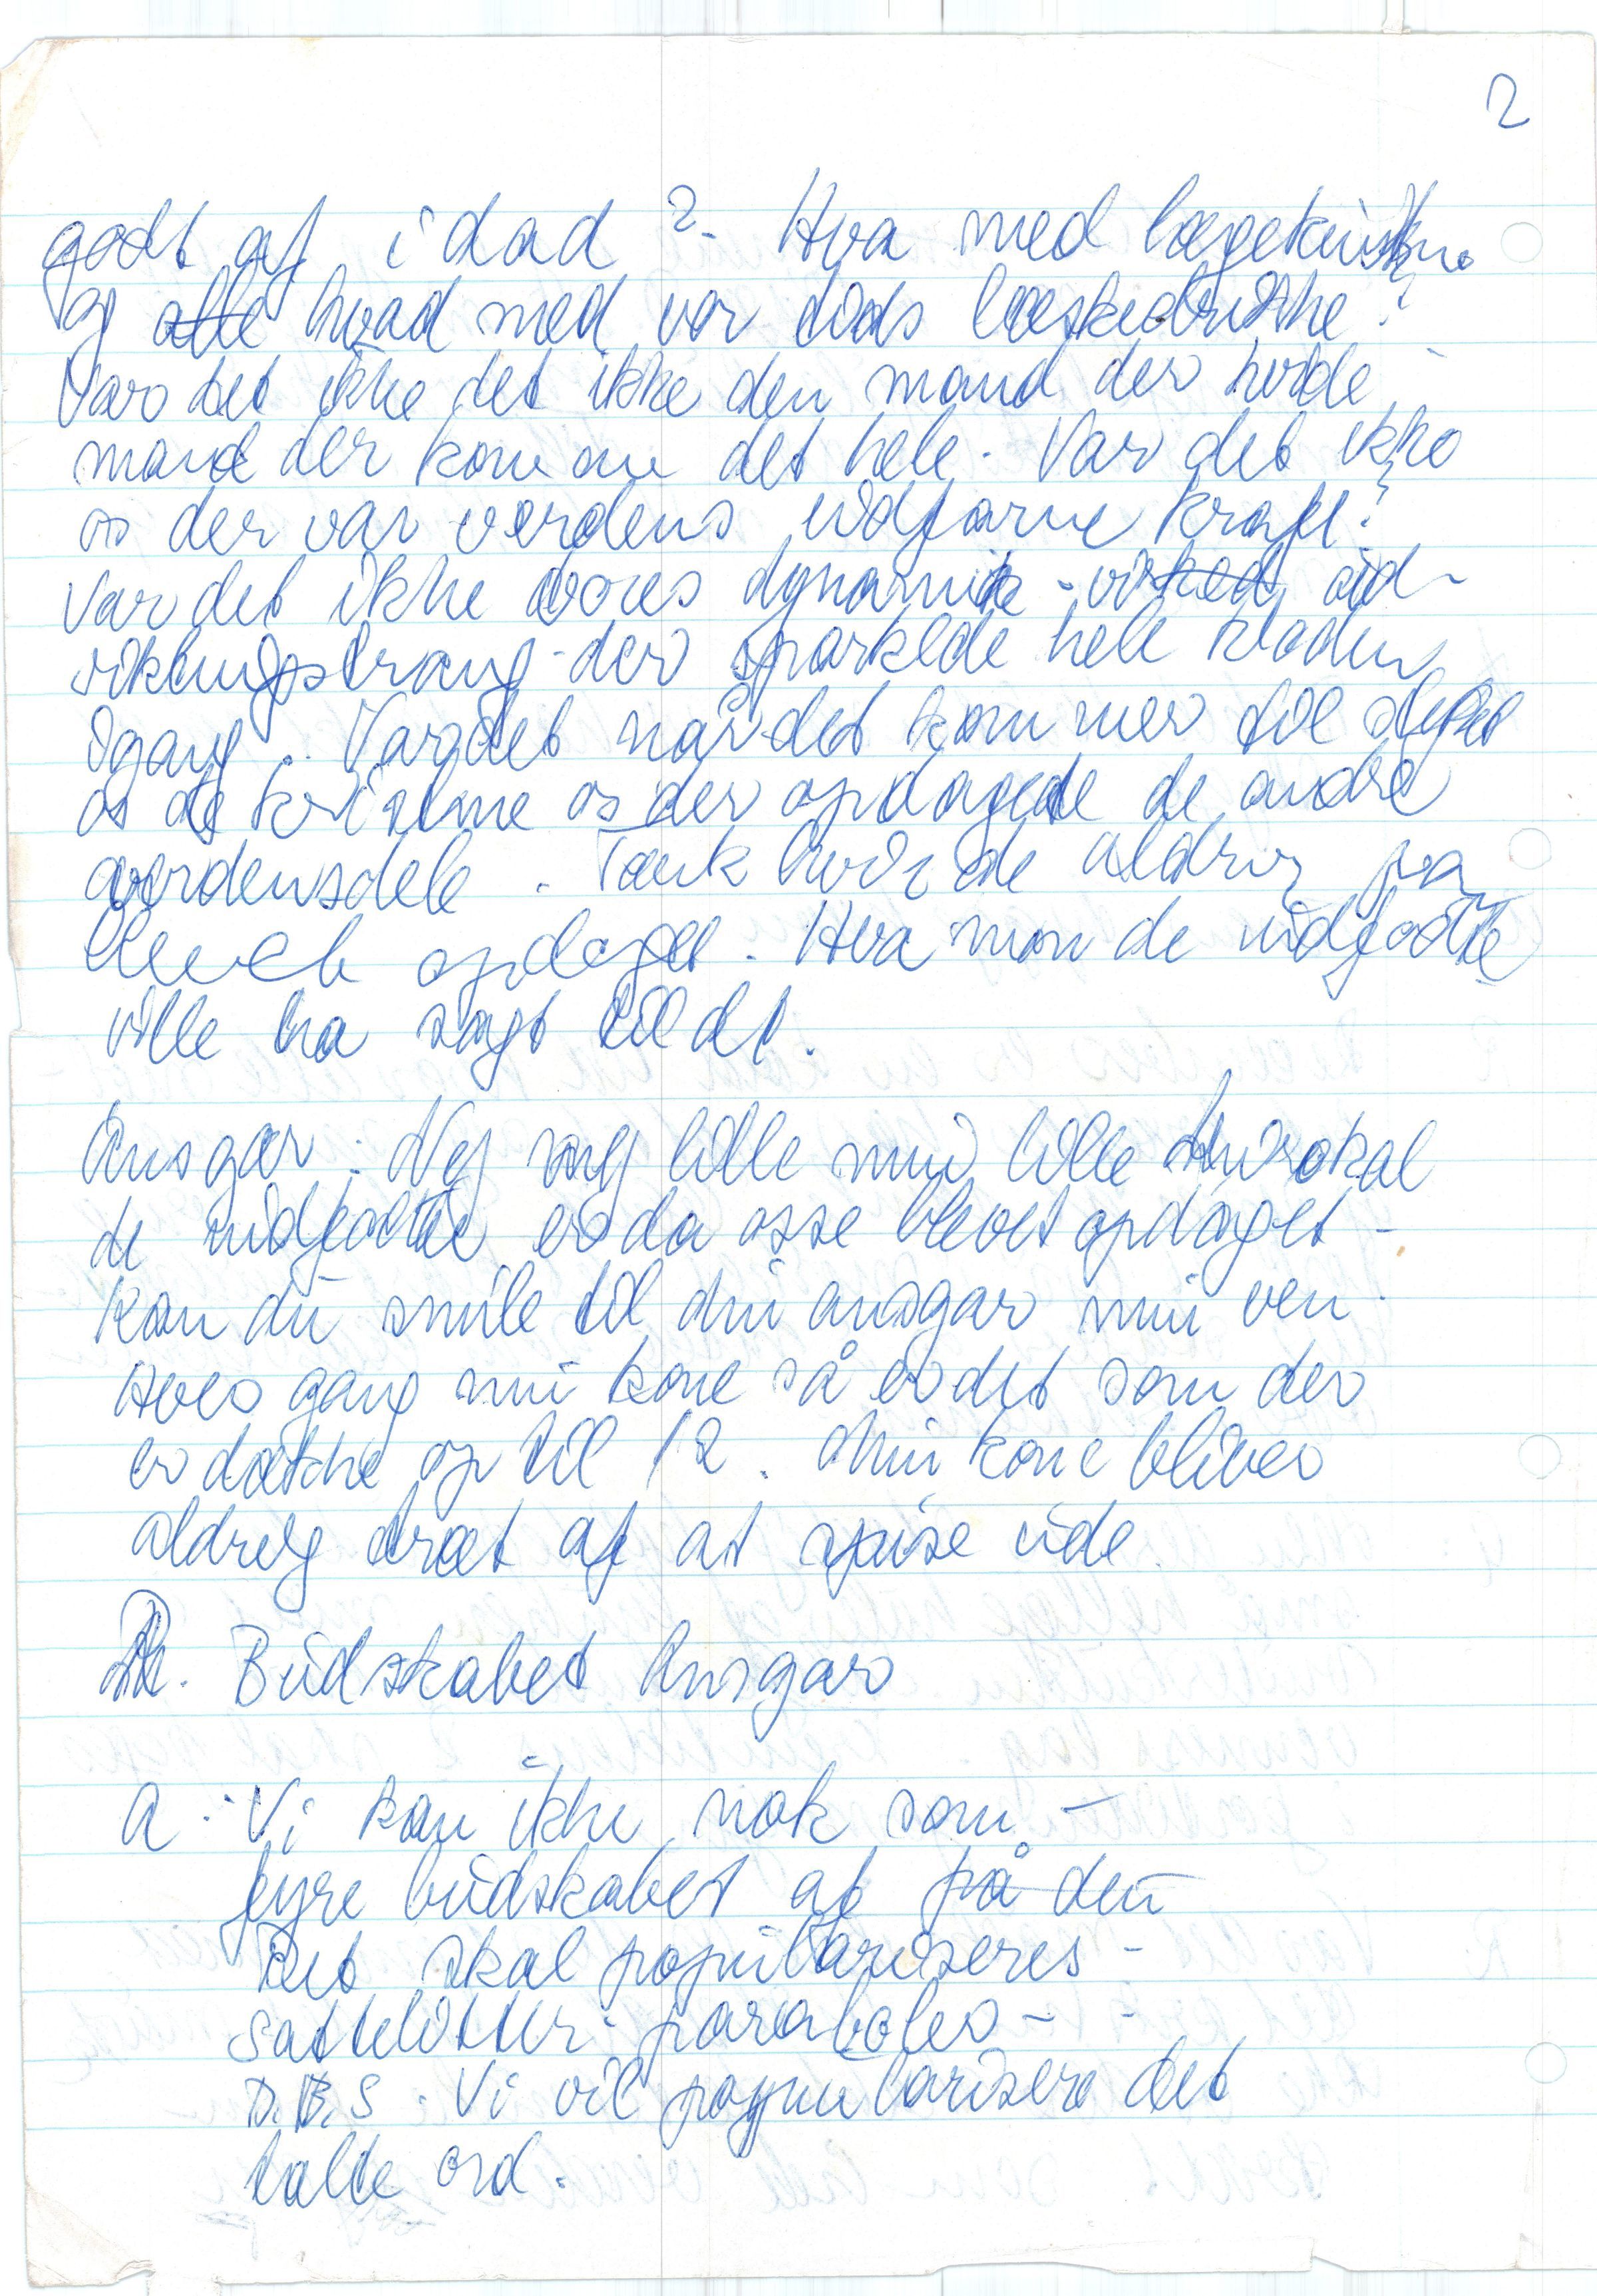 2
godt af i dad? Hva med lægekunsten
og alle hvad med vor tids læskedrikke?
Var det ikke det ikke den mand der hvide
mand der kom om det hele. Var det ikke
os der var verdens udfarne kraft?
Var det ikke vores dynamik - virked ud-
viklingstrang - der sparkede hele kloden
igang. Var det når det kommer til stykket
os de kristne os der opdagede de andre
verdensdele. Tænk hvis de aldrig var
blevet opdaget. Hva mon de indfødte
ville ha sagt til dt.
Ansgar: Nej nej lille min lille
de indfødte er da osse blevet opdaget -
kan du smile til din ansgar min ven.
Hver gang min kone så er det som der
er dække op til 12. Min kone bliver
aldrig træt af at spise ude.
Budskabet Ansgar
A: Vi kan ikke nok som -
fyre budskabet af på den
Det skal populariseres -
sattelitter - paraboler -
D.B.S. Vi vil popularisere det
talte ord.